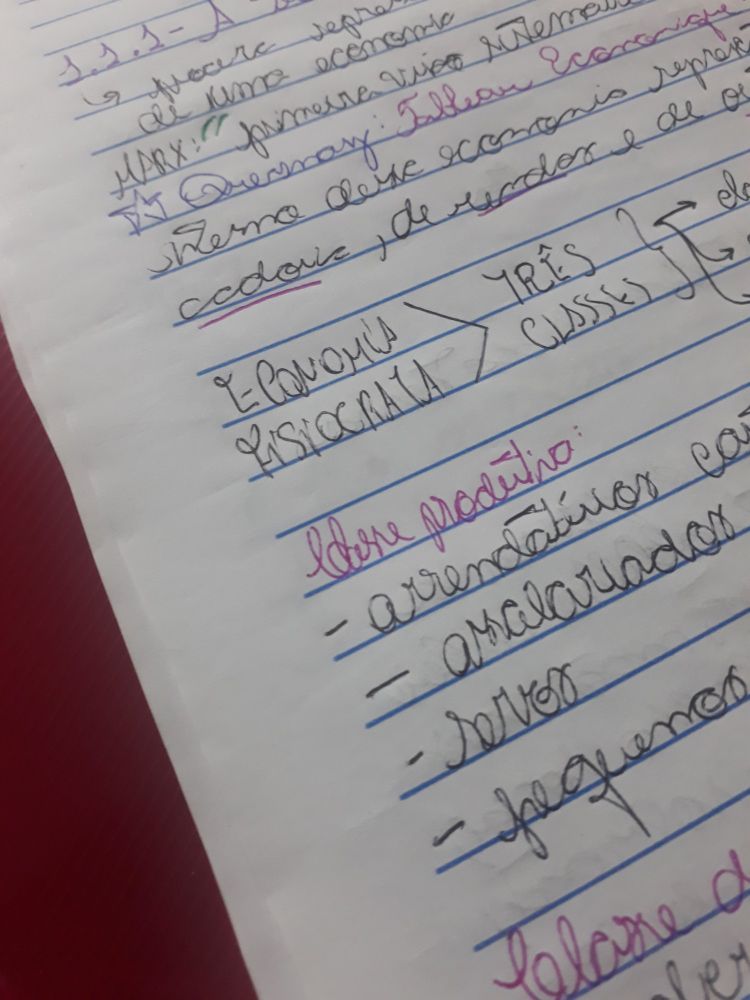 1.1.1- A
↳ procura repres
de uma economia
MARX: "primeira visão sistemáti
Quesnay: Tableau Economique:
sistema desse economia represe
cadoria, de rendas e de
ECONOMIA TRÊS
FISIOCRATA CLASSES
Classe produtiva:
- arrendatários
- assalariados
- servos
- pequenos
Classe d